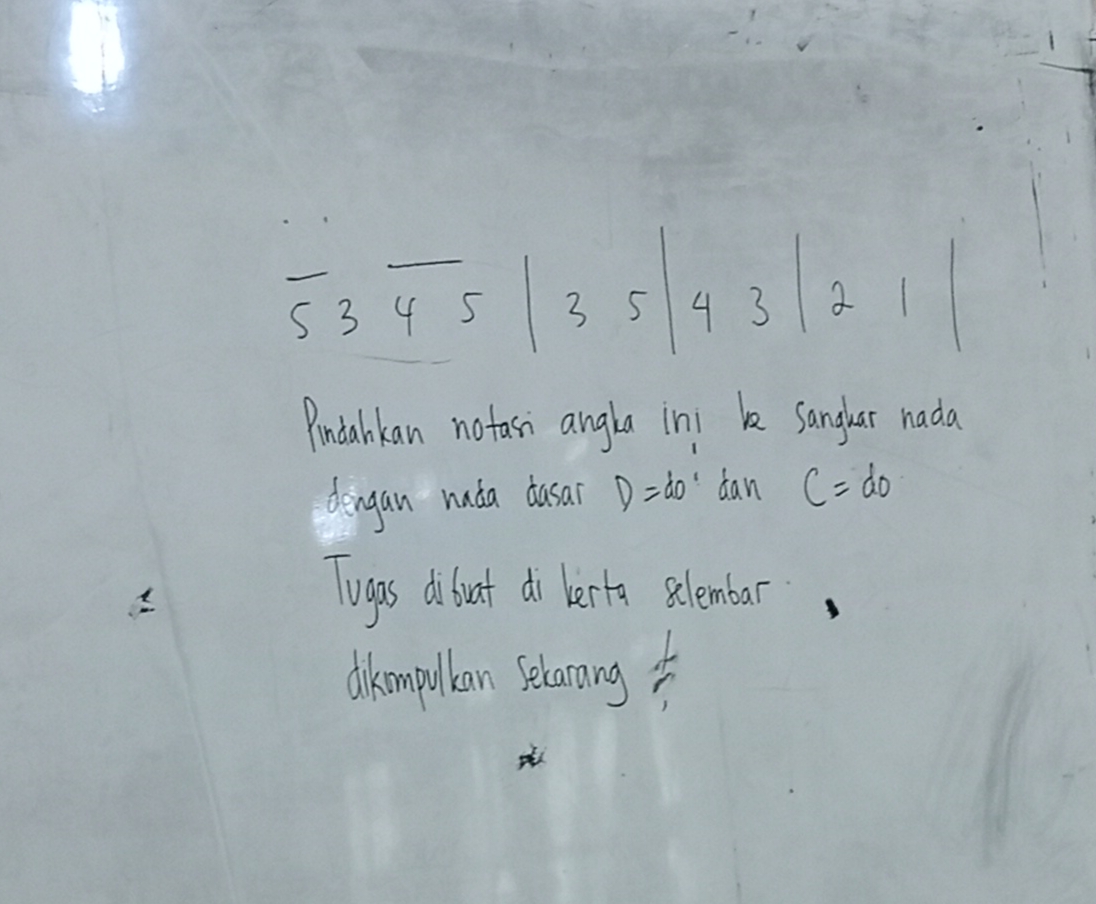 5 3 4 5 | 3 5 | 4 3 | 2 1 |
Pindahkan notasi angka ini ke Sangkar nada
dengan nada dasar D = do' dan C = do
Tugas dibuat di kerta selembar
dikumpulkan Sekarang